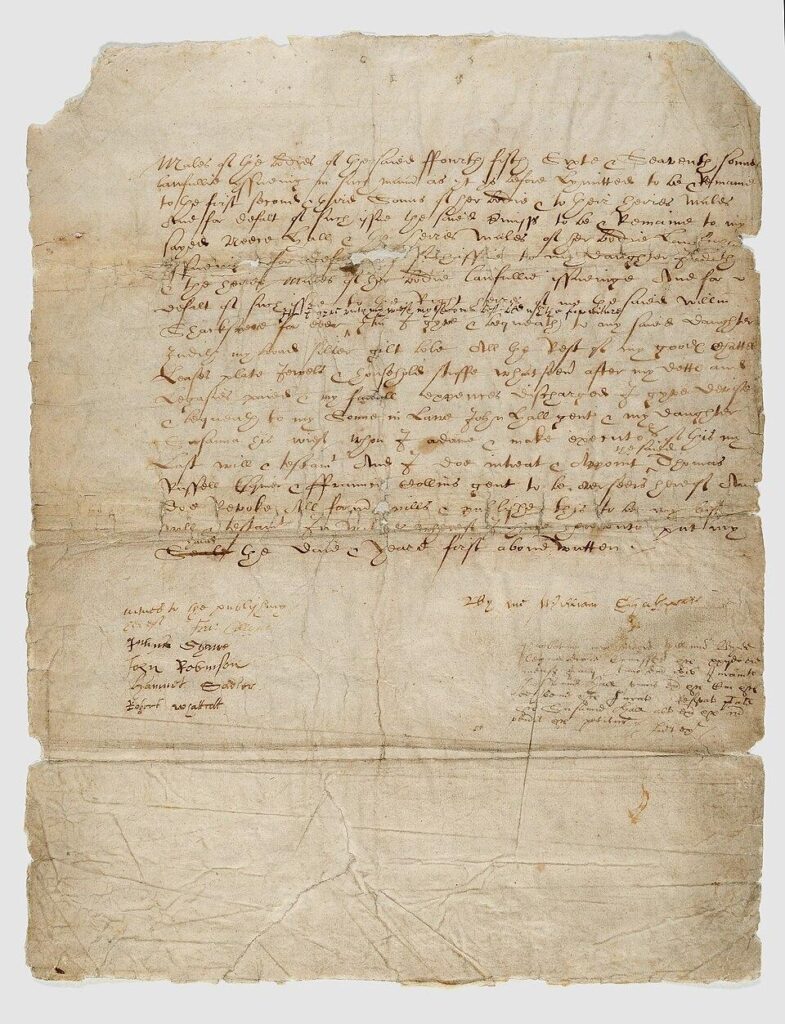 Males of the bodies of the saied ffourth fifth Sixte & Seaventh sonnes
lawfullie yssueing in such manner as yt ys before Lymitted to be & Remaine
to the first second & third Sonns of her bodie & to their heires Males
And for defalt of such issue the saied premiss to be & Remaine to my
sayed Neece Hall & the heires Males of her bodie Lawfully
yssueing for defalt of such issue to my daughter Judith
& the heires Males of her bodie lawfullie yssueinge And for
defalt of such issue to the Right heires of me the saied Willm
Itm I gyve unto my wief my second best bed with the furniture
Shackspere for ever Itm I gyve & bequeath to my saied daughter
Judith my broad silver gilt bole All the Rest of my goods Chattels
Leases plate Jewels & household stuffe whatsoever after my detts and
Legasies paied & my funerall expences discharged I gyve devise
& bequeath to my Sonne in Lawe John Hall gent & my daughter
Susanna his wief whom I ordaine & make executors of this my
the saied
Last will & testament And I doe intreat & Appoint Thomas
Russell Esquier & ffrauncis Collins gent to be overseers hereof And
doe Revoke All former wills & publishe this to be my last
will & testament In witnes whereof I have hereunto put my
hand
Seale the Daie & Yeare first above Written.
witnes to the publishing
hereof Fra: Collyns
Julyus Shawe
John Robinson
Hamnet Sadler
Robert Whattcott
By me William Shakspeare